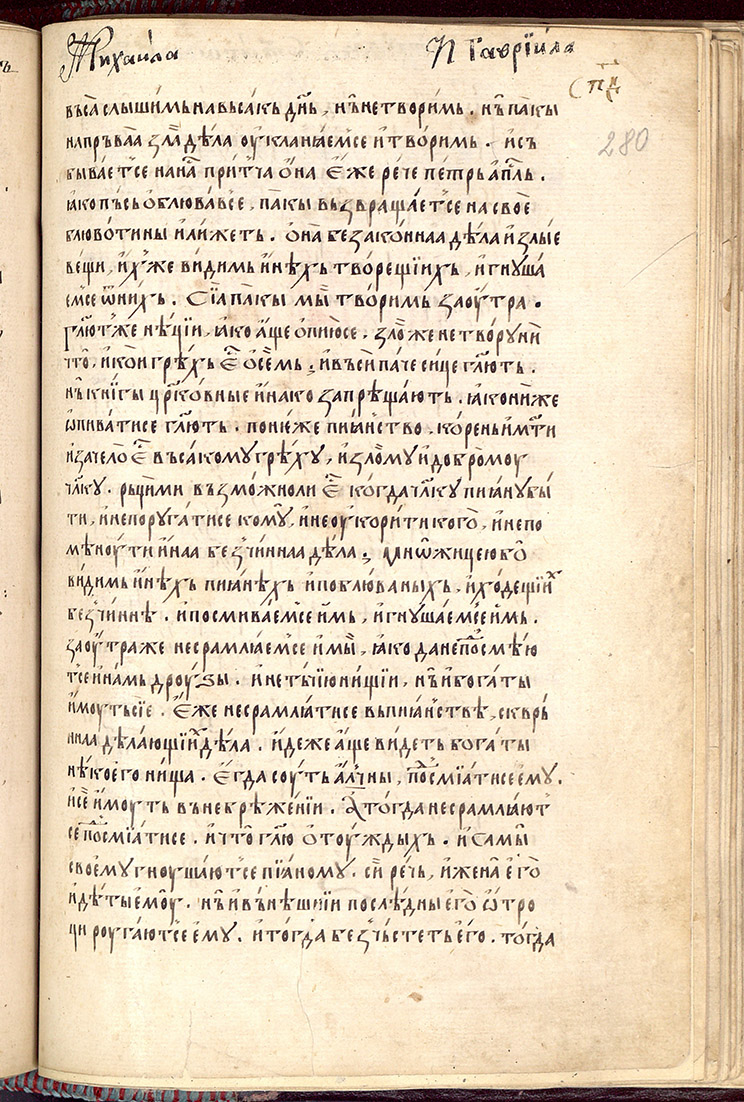 Михаила И Гаврїила
спд
280
въса слышимь на въсакь днь, нъ не творимь. нъ пакы
на пръваа злаа дѣла оукланꙗемсе и творимь. и съ
бываетсе на на притча ѻна еже рече петрь апль.
ꙗко пьсь ѻблювавсе, пакы възвращаетсе на свое
блювотины и лижеть. ѻна безаконнаа дѣла и злые
вещи, ихже видимь инѣхь творещїихь, и гнуша
емсе ѿ них. Сїа пакы мы творимь заоутра.
глютже нѣцїи, ꙗко аще ѻпиюсе, зло же не твору ни
что, и кои грѣхь ес ѻ семь; и въси паче сице глють.
нъ книгы црковные инако запрѣщають. ꙗко ниже
ѡпиватисе глють. понеже пиꙗнство, корень и мти
и зачело ес въсакому грѣху, и злому и добромоу
члку. рьци ми възможно ли ес когда члку пиꙗну бы
ти, и не поругатисе кому, и не оукорити кого, и не по
мѣноути инаа безчиннаа дѣла; Мнѡжицею бо
видимь инѣхь пиꙗнѣхь и поблюваныхь, и ходещїих
безчиннѣ. и посмиваемсе имь, и гнушаемсе имь.
заоутра же не срамлꙗемсе и мы, ꙗко да не посмѣю
тсе и намь дроузы. и не тькїю нищїи, нъ и богаты
имоуть сїе. Еже не срамлꙗтисе въ пиꙗнствѣ, сквръ
ннаа дѣлающїих дѣла. идеже аще видеть богаты
нѣкоего нища. Егда соуть алчны, посмїатисе ему.
и се имоуть въ небрѣженїи. А тогда не срамлꙗют
се посмїатисе. и что глю ѻ тоуждыхь. и самы
своему гноушаютсе пїаному. си речь, и жена его
и дѣты емоу. нъ и вънѣшнїи послѣдны его ѿтро
ци роугаютсе ему. и тогда безчьстеть его. тогда